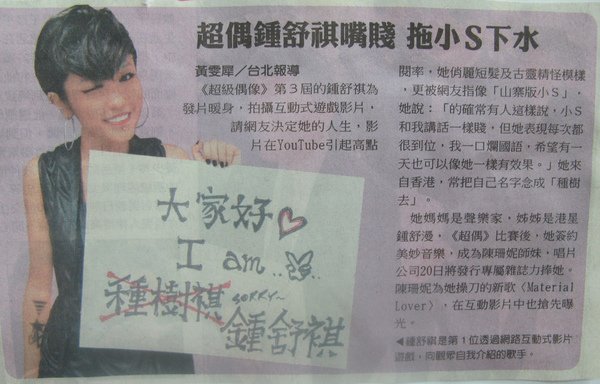 超偶鍾舒祺嘴賤 拖小S下水
黃雯犀／台北報導
《超級偶像》第3屆的鍾舒祺為
發片暖身，拍攝互動式遊戲影片，
請網友決定她的人生，影
片在YouTube引起高點
閱率，她俏麗短髮及古靈精怪模樣
，更被網友指像「山寨版小S」，
她說：「的確常有人這樣說，小S
和我講話一樣賤，但她表現每次都
很到位，我一口爛國語，希望有一
天也可以像她一樣有效果。」她來
自香港，常把自己名字念成「種樹
去」。
她媽媽是聲樂家，姊姊是港星
鍾舒漫，《超偶》比賽後，她簽約
美妙音樂，成為陳珊妮師妹，唱片
公司20日將發行專屬雜誌力捧她。
陳珊妮為她操刀的新歌〈Material
Lover〉，在互動影片中也搶先曝
光。
◀鍾舒祺是第1位透過網路互動式影片
遊戲，向觀眾自我介紹的歌手。
大家好
I am..
種樹祺
SORRY~
鍾舒祺